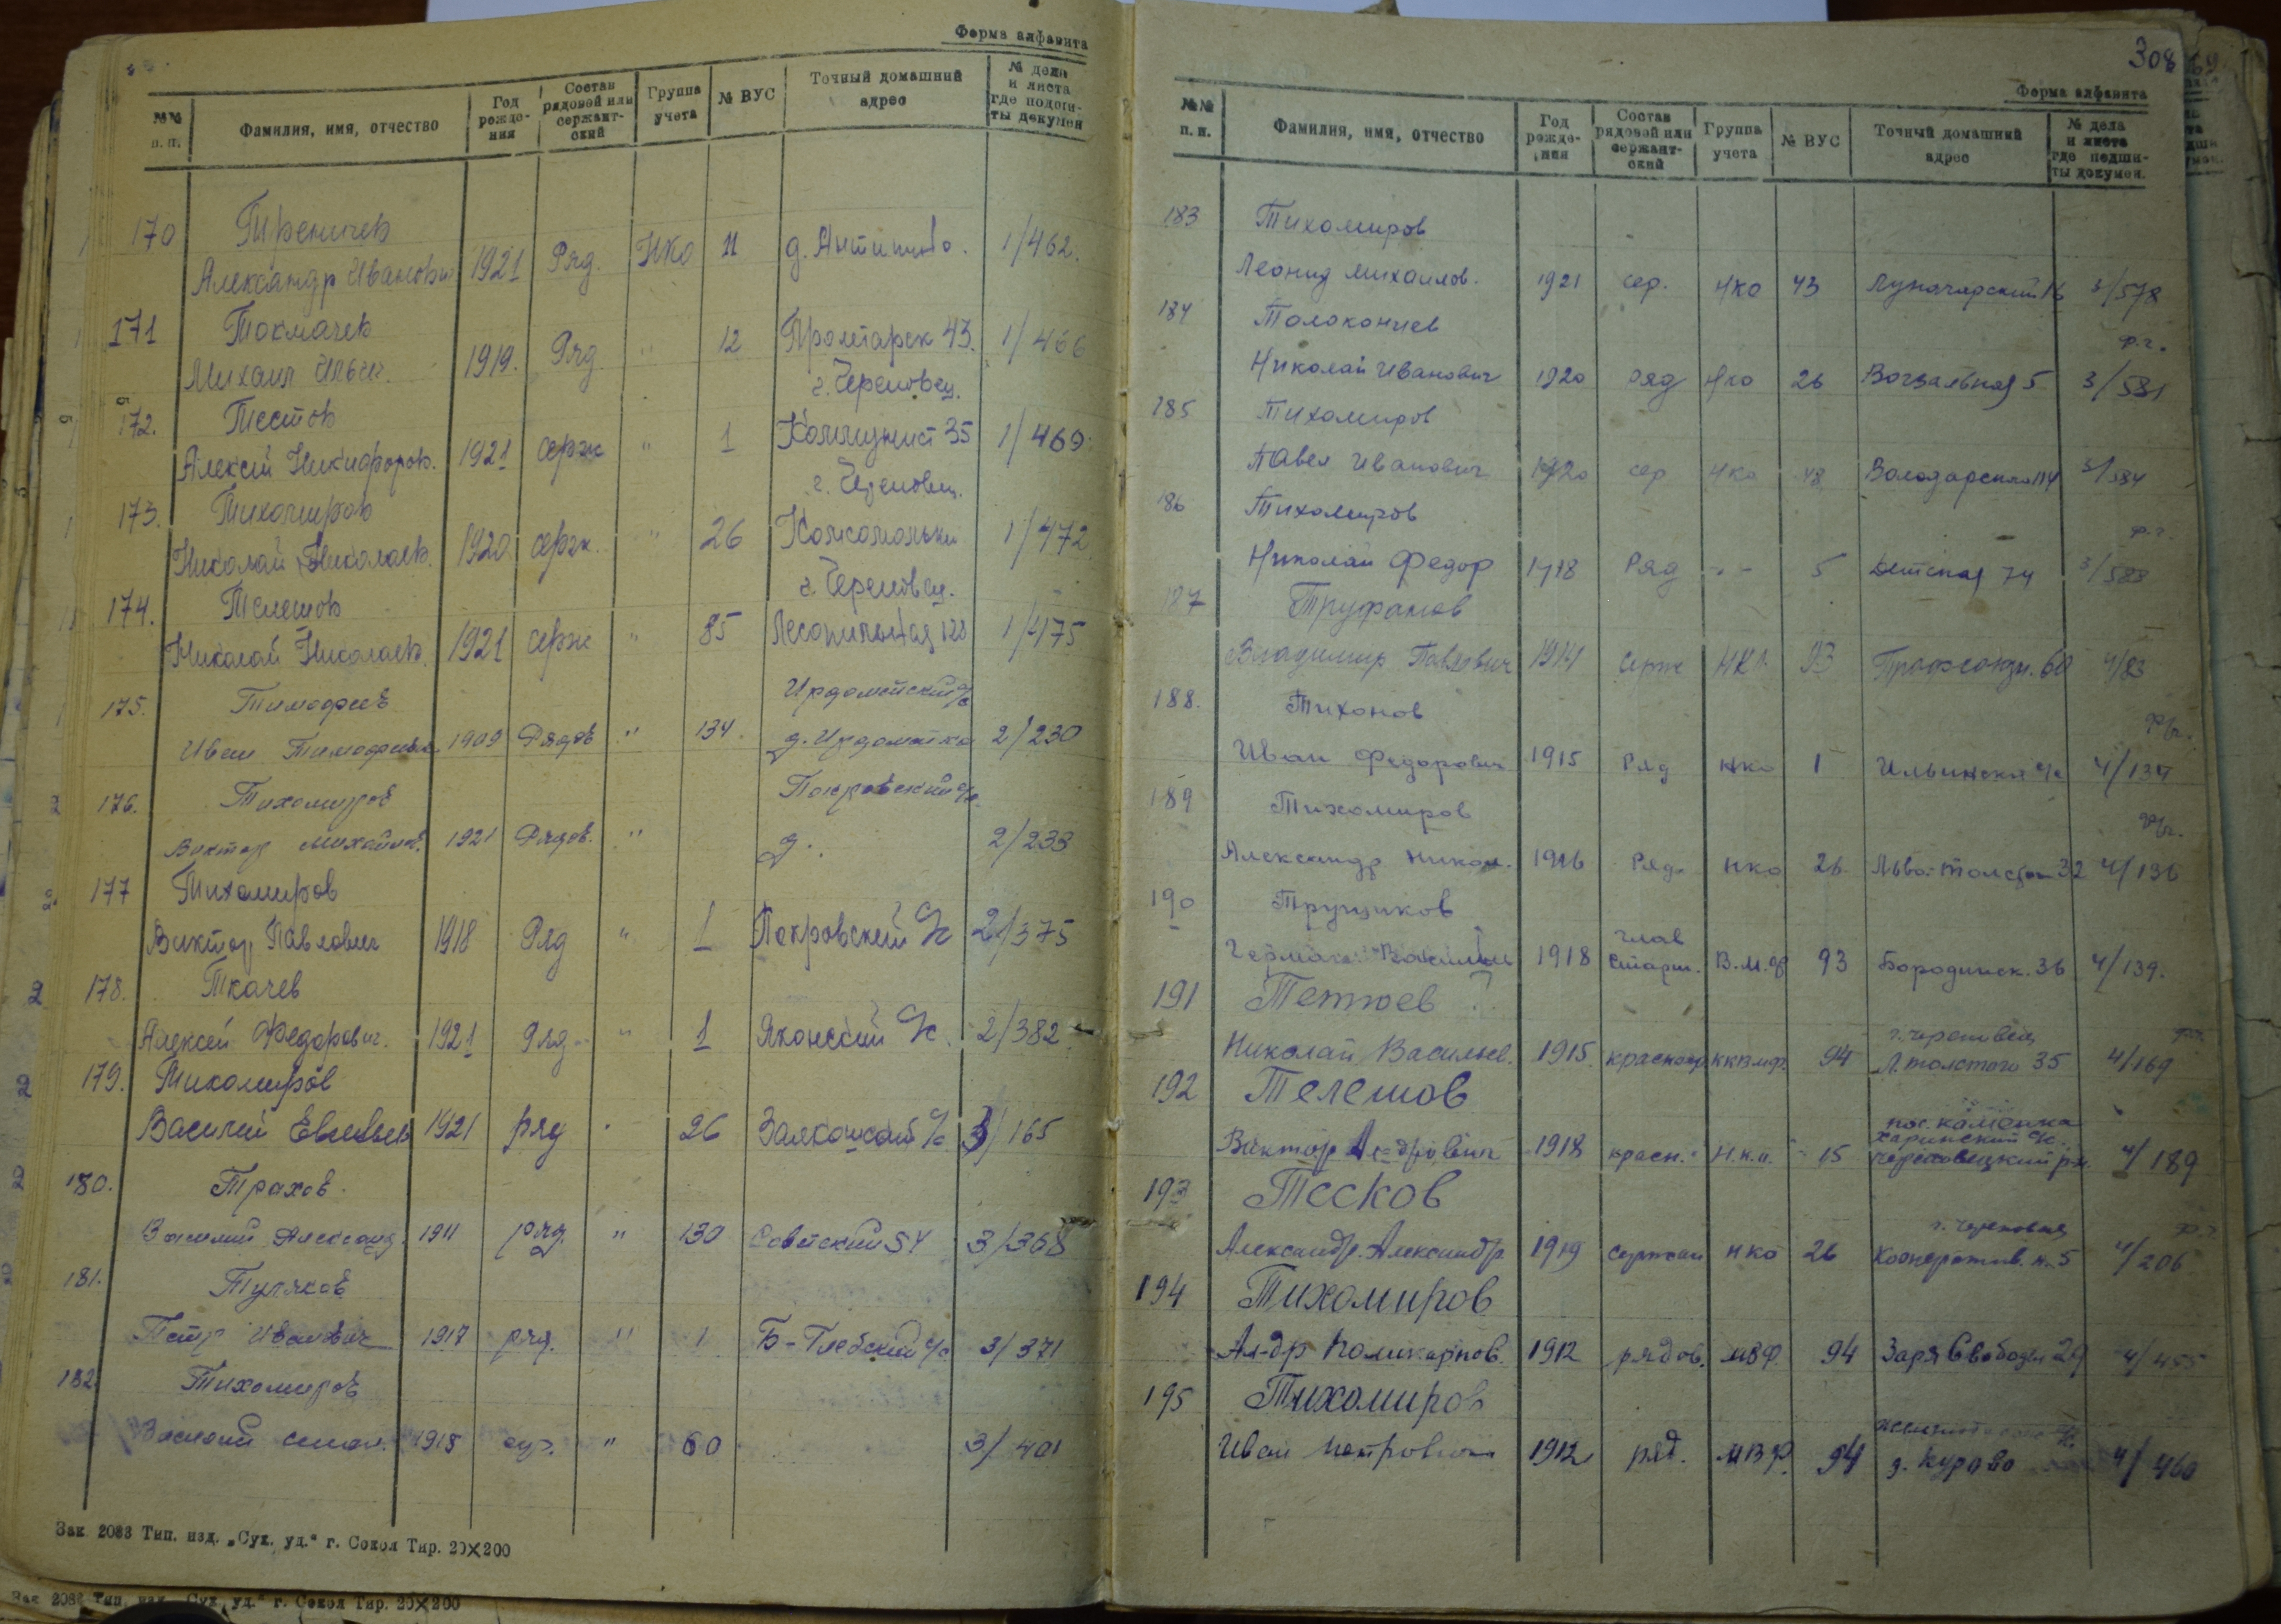 Форма алфавита
№№ п.п.
Фамилия, имя, отчество
Год рождения
Состав рядовой или сержантский
Группа учета
№ ВУС
Точный домашний адрес
№ дела и листа где подшиты докумен
170
Александр Иванович 1921 Ряд. НКО 11 д. Антипово. 1/462.
171 Токмачев
Михаил Ильич. 1919. Ряд " 12 Пролетарск 43. 1/466
г. Череповец.
172. Тестов
Алексей Никифоров. 1921 серж " 1 Коммунист 35 1/469
г. Череповец.
173. Тихомиров
Николай Николаев. 1920 серж. " 26 1/472
г. Череповец.
174. Телешов
Николай Николаев. 1921 серж " 85 Лесопильная 128 1/475
175. Тимофеев Ирдоматский с/с
Иван Тимофеев. 1909 Рядов " 134. д. Ирдоматка 2/230
176. Тихомиров Покровский с/с.
Виктор Михайлов. 1921 Рядов. " д. 2/233
177 Тихомиров
Виктор Павлович 1918 Ряд " 1 Покровский с/с 2/375
178. Ткачев
Алексей Федорович. 1921 Ряд " 1 Яконский с/с 2/382
179. Тихомиров
Василий 1921 ряд " 26 с/с 3/165
180. Трахов.
Василий Александ. 1911 ряд. " 130 Советский 54 3/368
181. Туляков
Петр Иванович 1917 ряд. " 1 Б-Глебский с/с 3/371
182 Тихомиров
Василий 1918 " 60 3/401
Зак 2083 Тип. изд. „Сух. уд." г. Сокол Тир. 20×200
Зак 2083 Тип. изд. „Сух. уд." г. Сокол Тир. 20×200
308
Форма алфавита
№№ п.п.
Фамилия, имя, отчество
Год рождения
Состав рядовой или сержантский
Группа учета
№ ВУС
Точный домашний адрес
№ дела и листа где подшиты докумен.
183 Тихомиров
Леонид Михайлов. 1921 сер. НКО 43 Луначарский 16 3/578
184 Толоконцев
Николай Иванович 1920 ряд НКО 26 Вогзальная 5 3/581
185 Тихомиров
Павел Иванович 1920 сер НКО 48 3/584
186 Тихомиров
Николай Федор 1918 Ряд -"- 5 Детская 74 3/588
187 Труфанов
Владимир Павлович 1914 Серж НКО 93 60 4/83
188. Тихонов
Иван Федорович 1915 Ряд НКО 1 с/с 4/134
189 Тихомиров
Александр Никол. 1916 Ряд. НКО 26. Льва-Толстого 32 4/136
190 Трущиков
Герман 1918 глав старш. В.М.Ф 93 Бородинск. 36 4/139.
191 ?
г. Череповец
Николай Васильев. 1915. 94 Л. Толстого 35 4/169
192 Телешов
пос. Каменка
Харинский с/с.
Виктор 1918 красн. 15 Череповецкий рн. 4/189
193 Тесков
г. Череповец
Александр. Александр 1919 сержан НКО 26 Кооператив. н. 5 4/206
194 Тихомиров
Ал-др Поликарпов. 1912 рядов. МВФ. 94 Заря Свободы 29 4/455
195 Тихомиров
Иван Петрович 1912 ряд. МВФ. 94 д. Курово 4/460